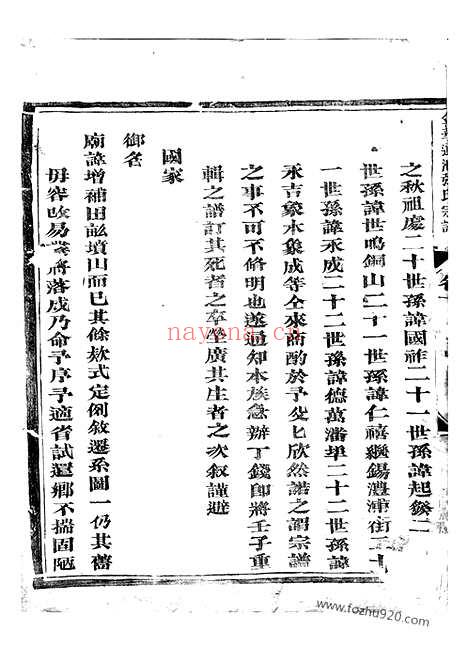 之秋祖處二十世孫諱國祚二十一世孫諱起參二
世孫諱世鳴銅山二十一世孫諱仁禧繳錫澧浦街二十
一世孫諱永成二十二世孫諱德萬潘畢二十二世孫諱
永吉象水象成等仝來商酌於予叟匕欣然諾之謂宗譜
之事不可不脩明也遂通知本族急辦丁錢即將壬子重
輯之譜訂其死者之卒坐廣其生者之次叙謹避
國家
御名
廟諱增補田畆墳山而已其條欵式定例敘遷系圖一仍其舊
毋容改易業將落成乃命予序予適省試還鄉不揣固陋
nayona.cn
www.fozhu920.com